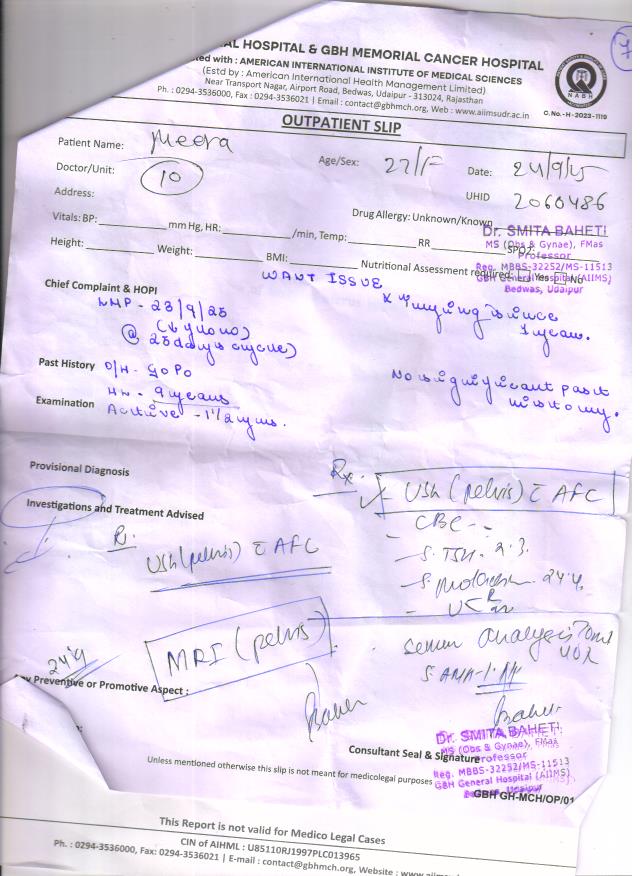 7
AL HOSPITAL & GBH MEMORIAL CANCER HOSPITAL
ted with : AMERICAN INTERNATIONAL INSTITUTE OF MEDICAL SCIENCES
(Estd by : American International Health Management Limited)
Near Transport Nagar, Airport Road, Bedwas, Udaipur - 313024, Rajasthan
Ph. : 0294-3536000, Fax : 0294-3536021 | Email : contact@gbhmch.org, Web : www.aiimsudr.ac.in
NABH
C.No.-H-2023-1119
OUTPATIENT SLIP
Patient Name: Meera Age/Sex: 27/F Date: 24/9/25
Doctor/Unit: 10 UHID 2060486
Address:
Drug Allergy: Unknown/Known
Dr. SMITA BAHETI
MS (Obs & Gynae), FMas
Professor
Reg. MBBS-32252/MS-11513
GBH General Hospital (AIIMS)
Bedwas, Udaipur
Vitals: BP: mm Hg, HR: /min, Temp: RR SPO2:
Height: Weight: BMI: Nutritional Assessment required: Yes No
WANT ISSUE
Chief Complaint & HOPI
LMP - 23/9/25
@ 25days cycle)
x Trying since
1 year.
Past History O/H - G0P0
No significant past
history.
9 years
Examination Active - 1 1/2 yrs.
Provisional Diagnosis
Rx
USG (pelvis) c AFC
Investigations and Treatment Advised
R
USG (pelvis) c AFC
CBC
- S. TSH - 2.3.
- S. Prolactin - 24.4
MRI (pelvis)
Semen analysis
S. AMH - 1.
24/9
y Preventive or Promotive Aspect :
Baheti
Baheti
Consultant Seal & Signature
Dr. SMITA BAHETI
MS (Obs & Gynae), FMas
Professor
Reg. MBBS-32252/MS-11513
GBH General Hospital (AIIMS)
Bedwas, Udaipur
Unless mentioned otherwise this slip is not meant for medicolegal purposes
GBH GH-MCH/OP/01
This Report is not valid for Medico Legal Cases
CIN of AIHML : U85110RJ1997PLC013965
Ph. : 0294-3536000, Fax: 0294-3536021 | E-mail : contact@gbhmch.org, Website : www.aiims